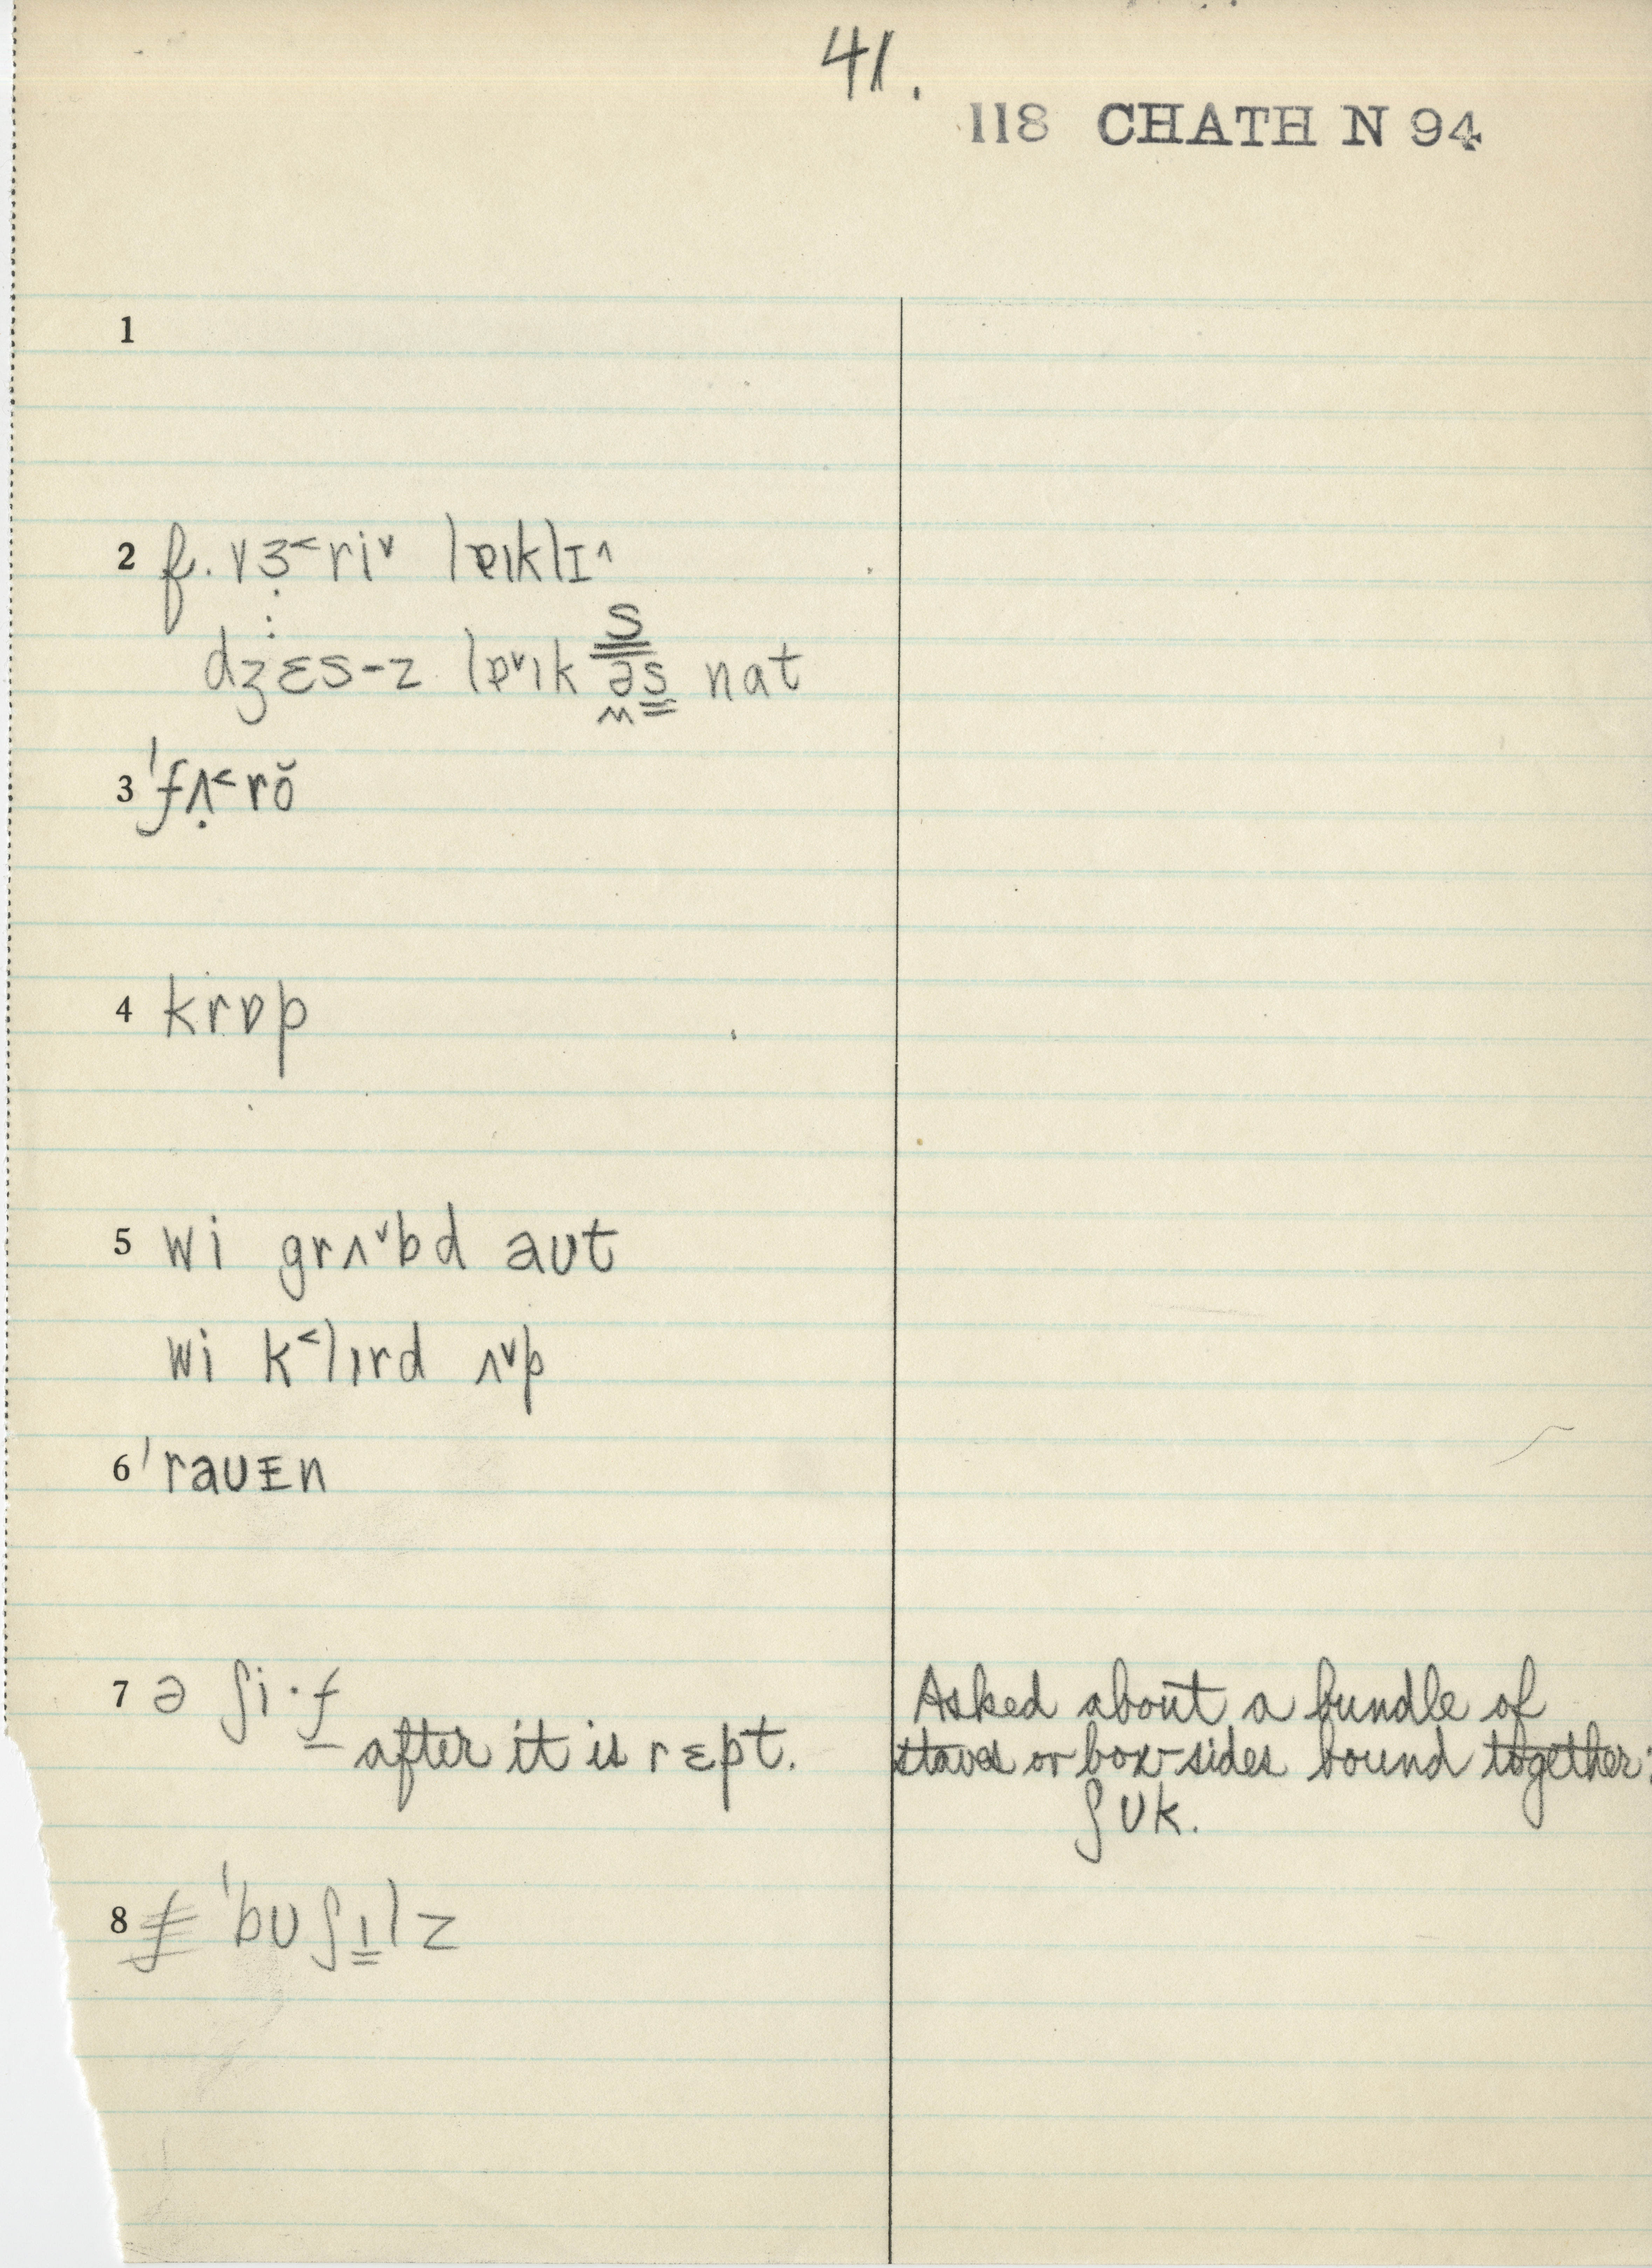 41.
118 CHATH N 94
1
2 f. vɜ˂ri˅ lɐɪklɪ˄
s
dʒɛs-z lɐ˅ɪk əs nat
3 ˈfʌ̣˂rŏ
4 krɒp
5 wi grʌ˅bd aʊt
wi k˂lɪrd ʌ˅p
6 ˈraʊᵻn
7 ə ʃi·f
after it is rɛpt.
Asked about a bundle of
staves or box-sides bound together:
ʃʊk.
8 ˈbʊʃɪ̳lz